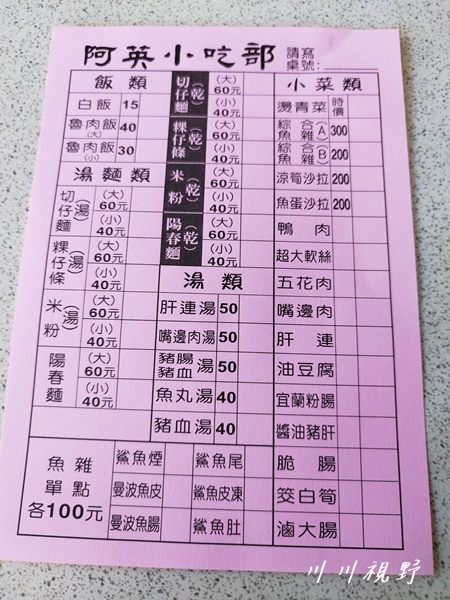 阿英小吃部
請寫桌號:
飯類
白飯 15
魯肉飯(大) 40
魯肉飯(小) 30
湯麵類
切仔麵(湯) (大)60元
(小)40元
粿仔條(湯) (大)60元
(小)40元
米粉(湯) (大)60元
(小)40元
陽春麵 (大)60元
(小)40元
切仔麵(乾) (大)60元
(小)40元
粿仔條(乾) (大)60元
(小)40元
米粉(乾) (大)60元
(小)40元
陽春麵(乾) (大)60元
(小)40元
湯類
肝連湯 50
嘴邊肉湯 50
豬腸豬血湯 50
魚丸湯 40
豬血湯 40
小菜類
燙青菜 時價
綜合魚雜(A) 300
綜合魚雜(B) 200
涼筍沙拉 200
魚蛋沙拉 200
鴨肉
超大軟絲
五花肉
嘴邊肉
肝連
油豆腐
宜蘭粉腸
醬油豬肝
脆腸
筊白筍
滷大腸
魚雜單點各100元
鯊魚煙 鯊魚尾
曼波魚皮 鯊魚皮凍
曼波魚腸 鯊魚肚
川川視野